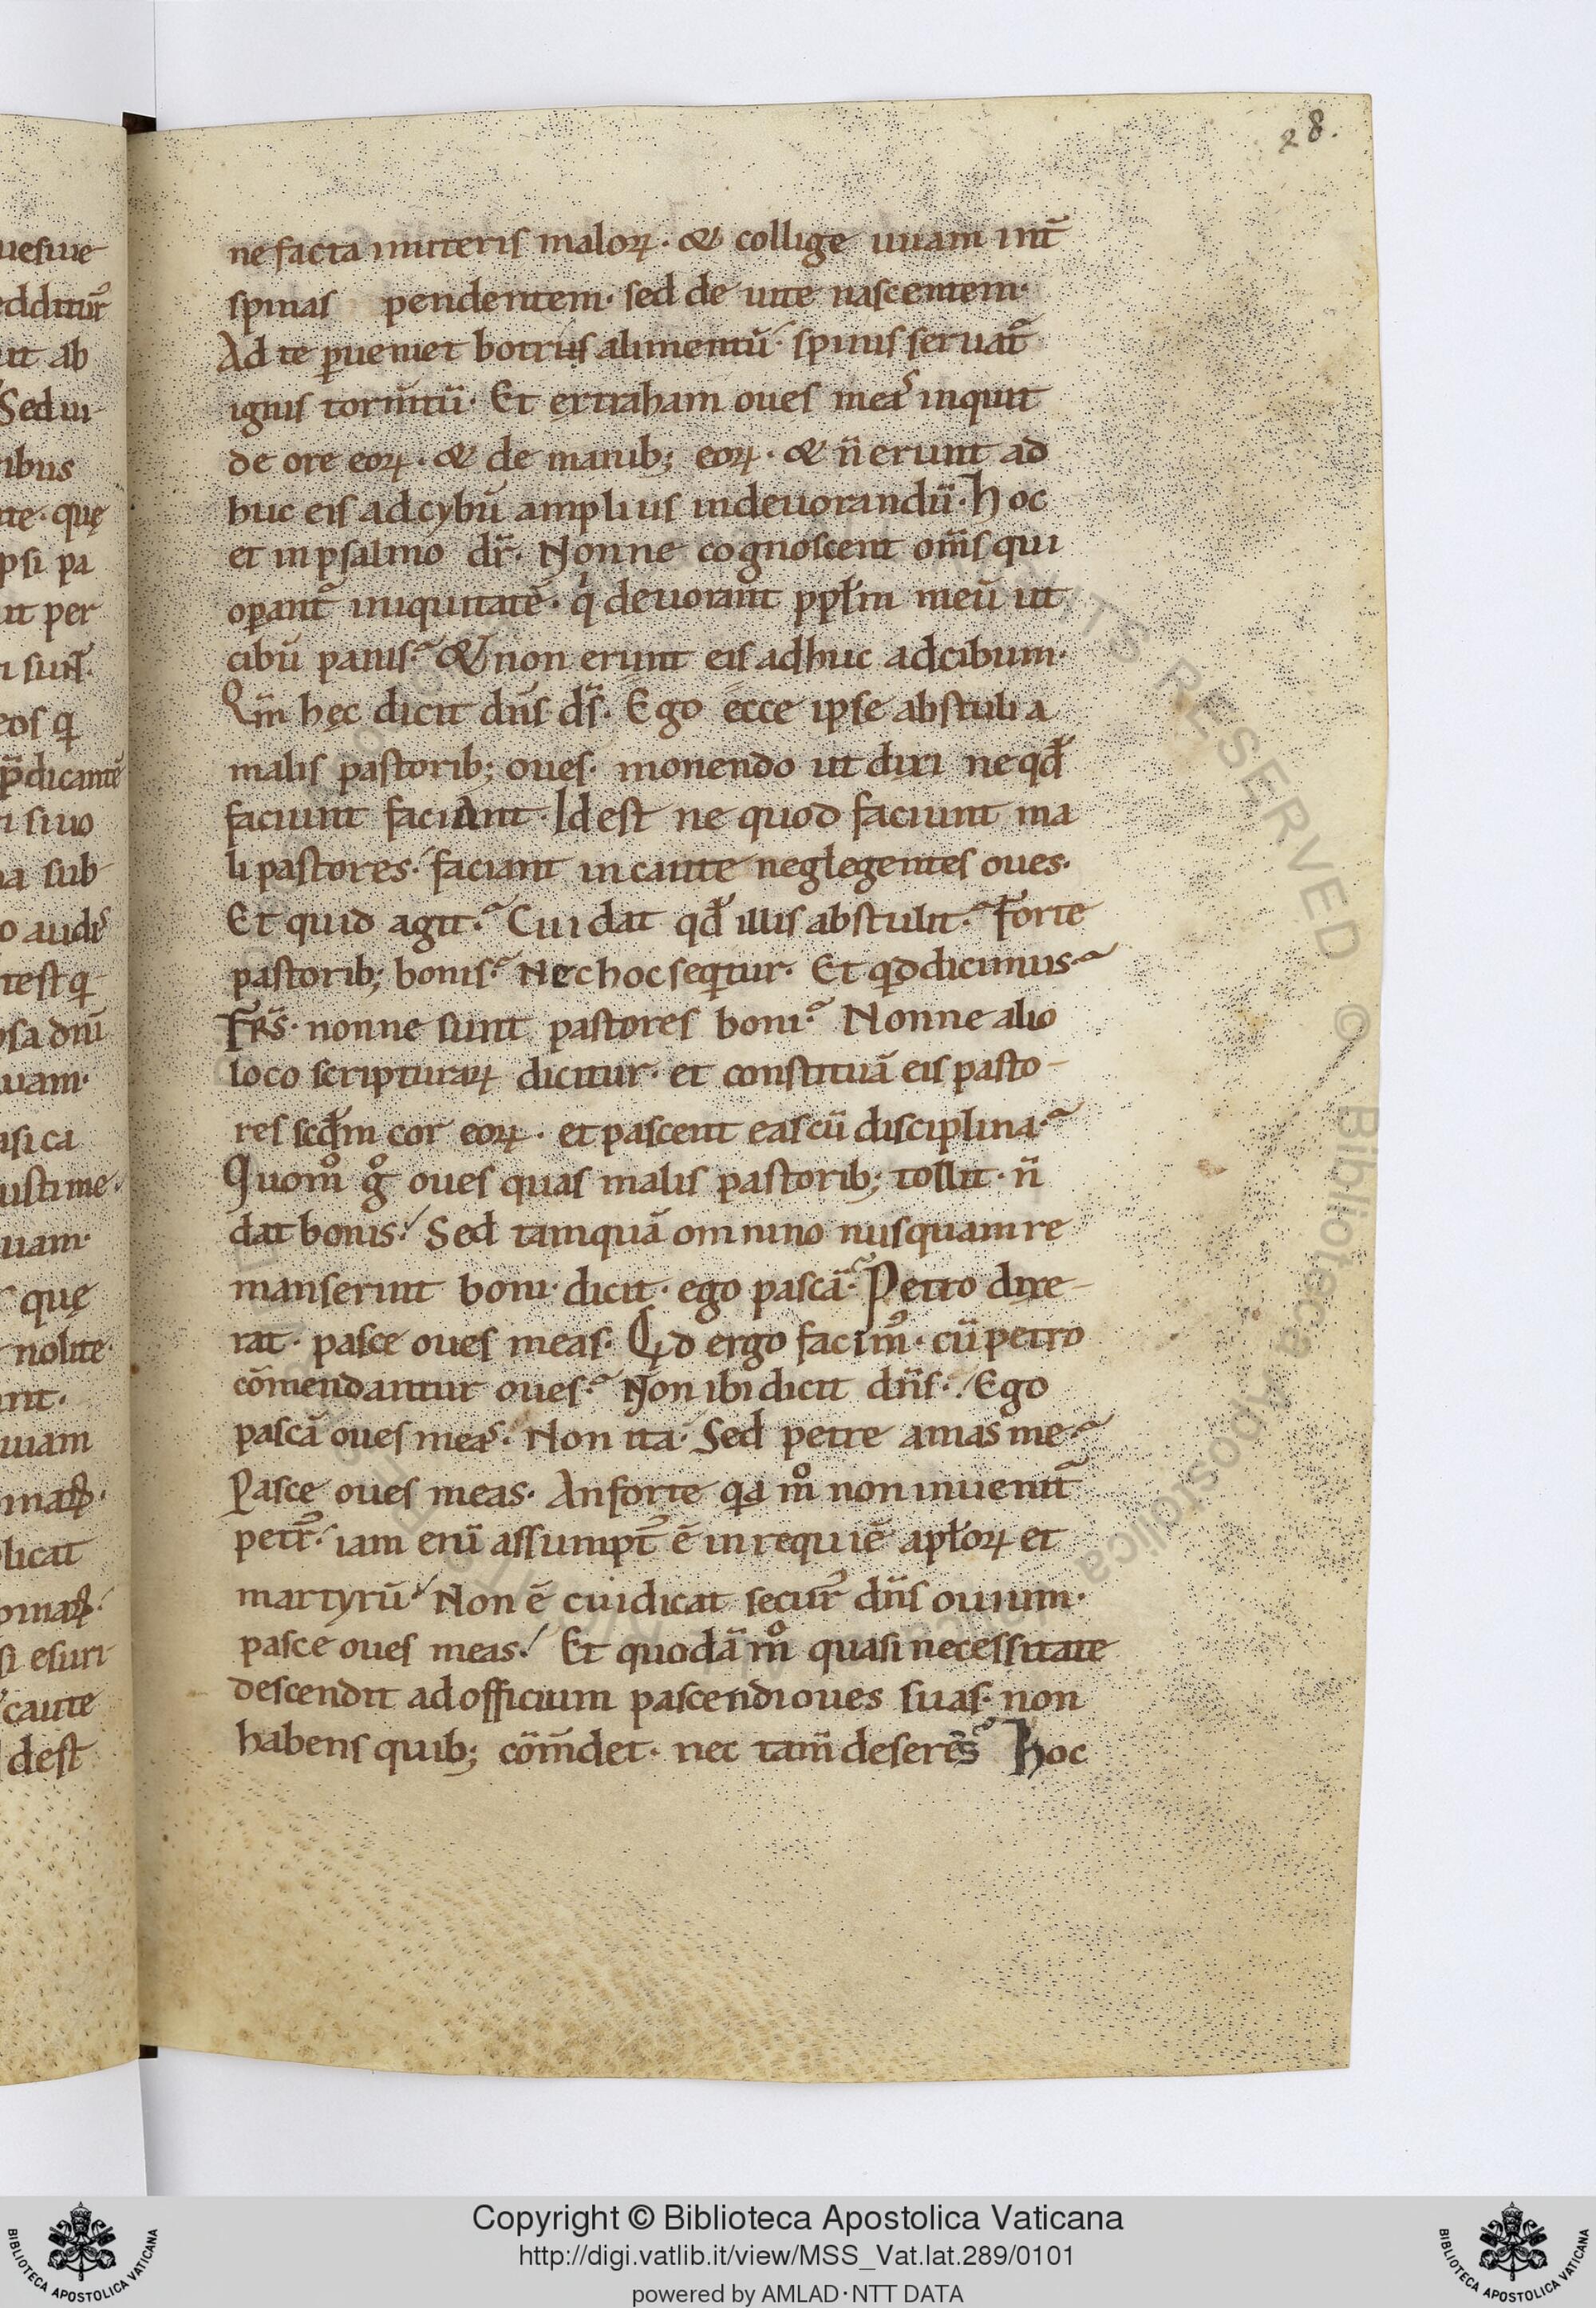 28.
ne facta imiteris maloꝝ· & collige uuam int̄
spinas pendentem· sed de uite nascentem·
Ad te ꝑueniet botrus alimentū· spinis seruat᷒
ignis torm̄tū· Et extraham oues meas inquit
de ore eoꝝ· & de manib; eoꝝ· & n̄ erunt ad
huc eis ad cybū amplius in deuorandū· Hoc
et in psalmo dr̄· Nonne cognoscent om̄s qui
oꝑant᷒ iniquitatē· q̇ deuorant ppl̄m meū ut
cibū panis? & non erunt eis adhuc ad cibum·
Qm̄ hęc dicit dn̄s ds̄· Ego ecce ipse abstuli a
malis pastorib; oues· monendo ut dixi ne qđ
faciunt faciant· Idest ne quod faciunt ma
li pastores· faciant incaute neglegentes oues·
Et quid agit? Cui dat qđ illis abstulit? Forte
pastorib; bonis? Nec hoc seqitur· Et qd dicimus?
Frs̄· nonne sunt pastores boni? Nonne alio
loco scripturaꝝ dicitur· et constituā eis pasto-
res scđm cor eoꝝ· et pascent eas cū disciplina?
Quom̊ g̊ oues quas malis pastorib; tollit· n̄
dat bonis? Sed tamquā omnino nusquam re
manserint boni· dicit· ego pascā? Petro dixe-
rat· pasce oues meas· Qid ergo facim᷒· cū petro
cōmendantur oues? Non ibi dicit dn̄s· Ego
pascā oues meas· Non ita· Sed petre amas me?
Pasce oues meas· An forte qa m̊ non inuenit᷒
petr᷒· iam enī assumpt᷒ ē in requiē apl̄oꝝ et
martyrū· Non ē cui dicat secur᷒ dn̄s ouium·
pasce oues meas! Et quodā m̊ quasi necessitate
descendit ad officium pascendi oues suas· non
habens quib; cōm̄det· nec tam̄ deserēs? Hoc
uesiue
ut ab
Sed ui
ibus
te· quę
psi pa
ut per
eos q
ꝓdicantē
i suo
na sub
test q
osa dn̄i
uam·
usti me·
uam·
quę
nolite·
nt·
uuam
licat
si esuri
caute
dest
ALL RIGHTS RESERVED © Biblioteca Apostolica
Copyright © Biblioteca Apostolica Vaticana
http://digi.vatlib.it/view/MSS_Vat.lat.289/0101
powered by AMLAD·NTT DATA
BIBLIOTECA APOSTOLICA VATICANA
BIBLIOTECA APOSTOLICA VATICANA